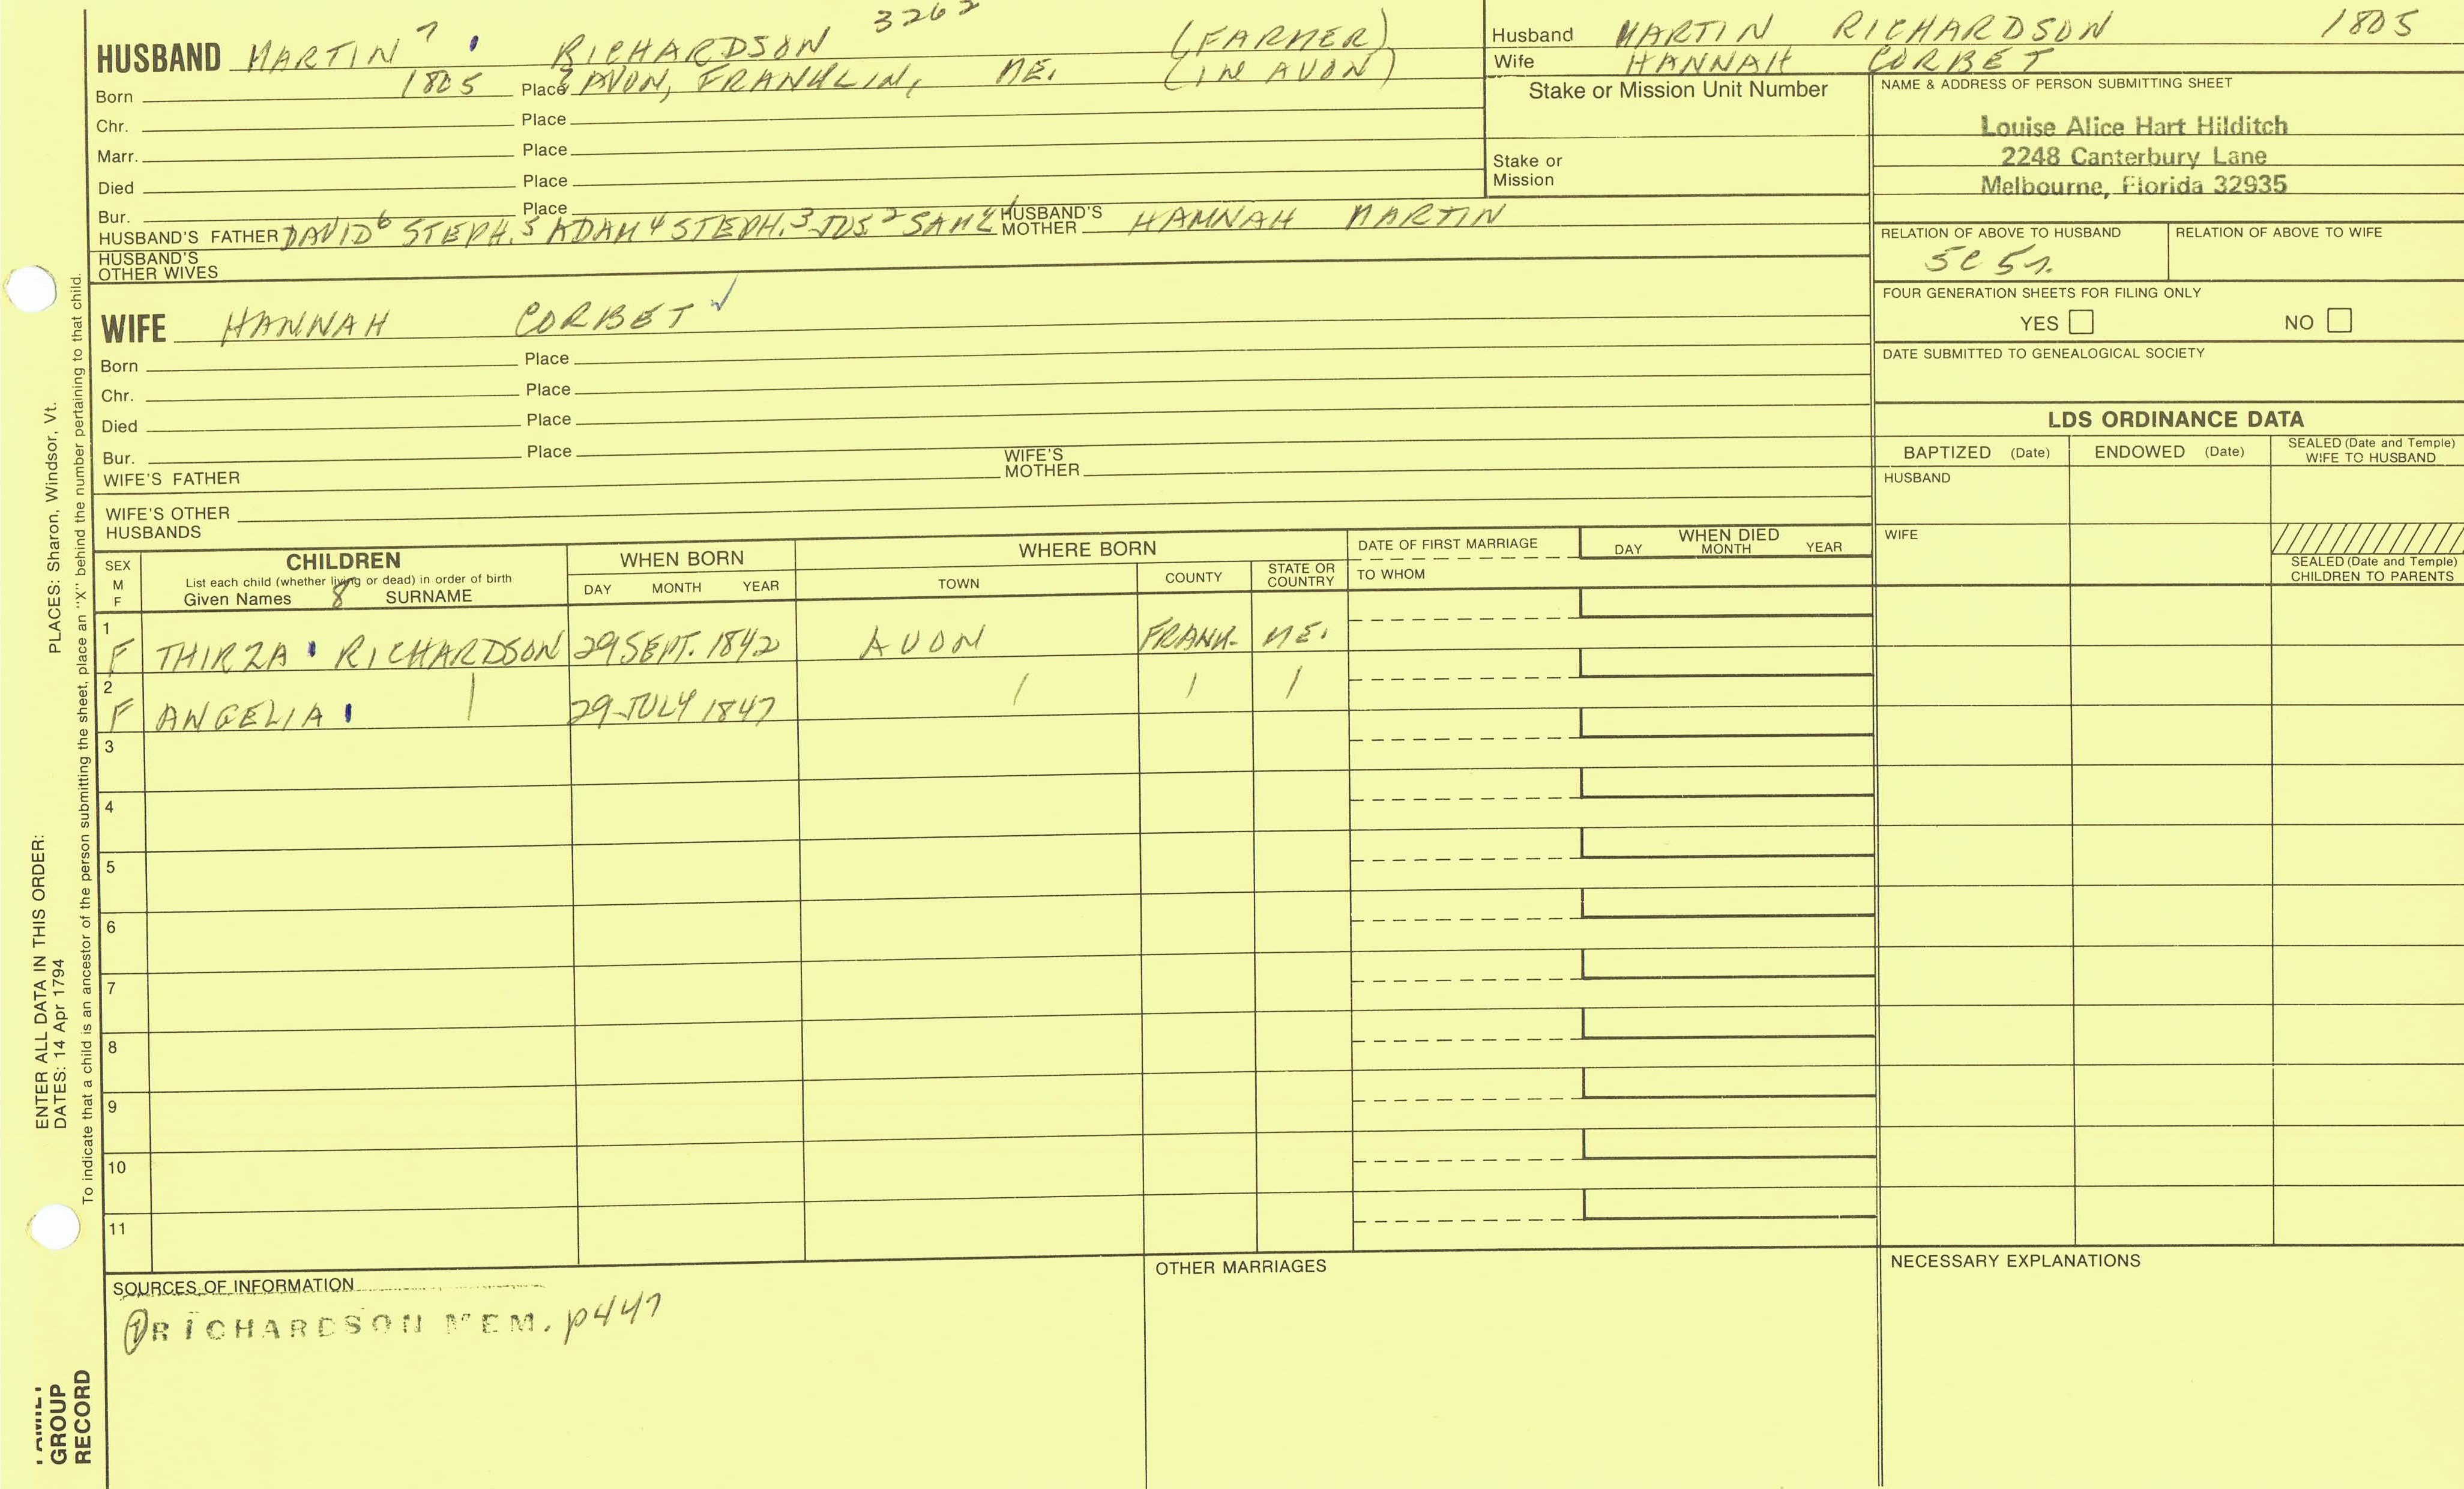 3262
HUSBAND MARTIN 7 RICHARDSON (FARMER)
Born 1805 Place ? AVON, FRANKLIN, ME. (IN AVON)
Chr. Place
Marr. Place
Died Place
Bur. Place
HUSBAND'S FATHER DAVID 6 STEPH. 5 ADAM 4 STEPH. 3 JOS 2 SAML 1 HUSBAND'S MOTHER HANNAH MARTIN
HUSBAND'S OTHER WIVES
Husband MARTIN RICHARDSON 1805
Wife HANNAH CORBET
Stake or Mission Unit Number
Stake or Mission
NAME & ADDRESS OF PERSON SUBMITTING SHEET
Louise Alice Hart Hilditch
2248 Canterbury Lane
Melbourne, Florida 32935
RELATION OF ABOVE TO HUSBAND RELATION OF ABOVE TO WIFE
5C 5r.
FOUR GENERATION SHEETS FOR FILING ONLY
YES NO
DATE SUBMITTED TO GENEALOGICAL SOCIETY
WIFE HANNAH CORBET ✓
Born Place
Chr. Place
Died Place
Bur. Place
WIFE'S FATHER WIFE'S MOTHER
WIFE'S OTHER HUSBANDS
LDS ORDINANCE DATA
BAPTIZED (Date) ENDOWED (Date) SEALED (Date and Temple) WIFE TO HUSBAND
HUSBAND
WIFE
SEALED (Date and Temple) CHILDREN TO PARENTS
SEX M F
CHILDREN
List each child (whether living or dead) in order of birth
Given Names 8 SURNAME
WHEN BORN
DAY MONTH YEAR
WHERE BORN
TOWN COUNTY STATE OR COUNTRY
DATE OF FIRST MARRIAGE
TO WHOM
WHEN DIED
DAY MONTH YEAR
1 F THIRZA RICHARDSON 29 SEPT. 1842 AVON FRANK. ME.
2 F ANGELIA | 29 JULY 1847 / / /
3
4
5
6
7
8
9
10
11
SOURCES OF INFORMATION
① RICHARDSON MEM. p447
OTHER MARRIAGES
NECESSARY EXPLANATIONS
ENTER ALL DATA IN THIS ORDER:
DATES: 14 Apr 1794
PLACES: Sharon, Windsor, Vt.
To indicate that a child is an ancestor of the person submitting the sheet, place an "X" behind the number pertaining to that child.
FAMILY
GROUP
RECORD